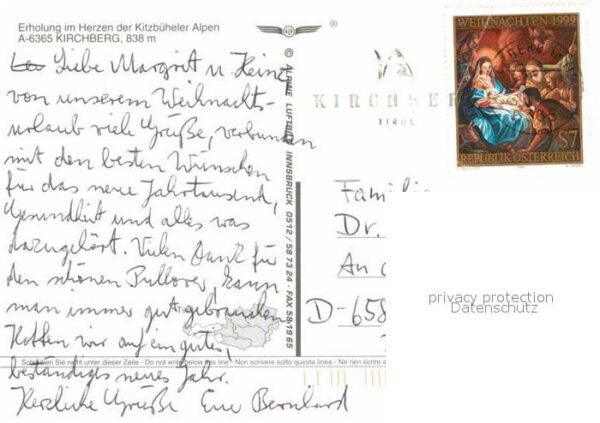 Erholung im Herzen der Kitzbüheler Alpen
A-6365 KIRCHBERG, 838 m
®
Liebe Margrit u. Heinz
von unserem Weihnachts-
urlaub viele Grüße, verbunden
mit den besten Wünschen
für das neue Jahrtausend,
Gesundheit und alles was
dazugehört. Vielen Dank für
den schönen Pullover, kann
man immer gut gebrauchen
Hoffen wir auf ein gutes,
beständiges neues Jahr.
Herzliche Grüße Eure Bernhard
Schreiben Sie nicht unter dieser Zeile - Do not write below this line - Non scrivere sotto questa linea - Ne rien écrire
© ALPINE LUFTBILD INNSBRUCK 0512 / 58 73 24 · FAX 58 19 65
KIRCHBERG
TIROL
WEIHNACHTEN 1999
S7
REPUBLIK ÖSTERREICH
Familie
Dr.
An
D-658
privacy protection
Datenschutz